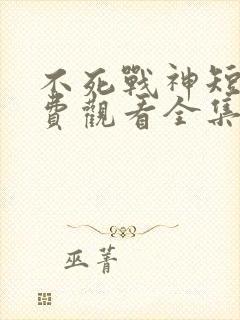 不死戰神短
費觀看全集
巫菁